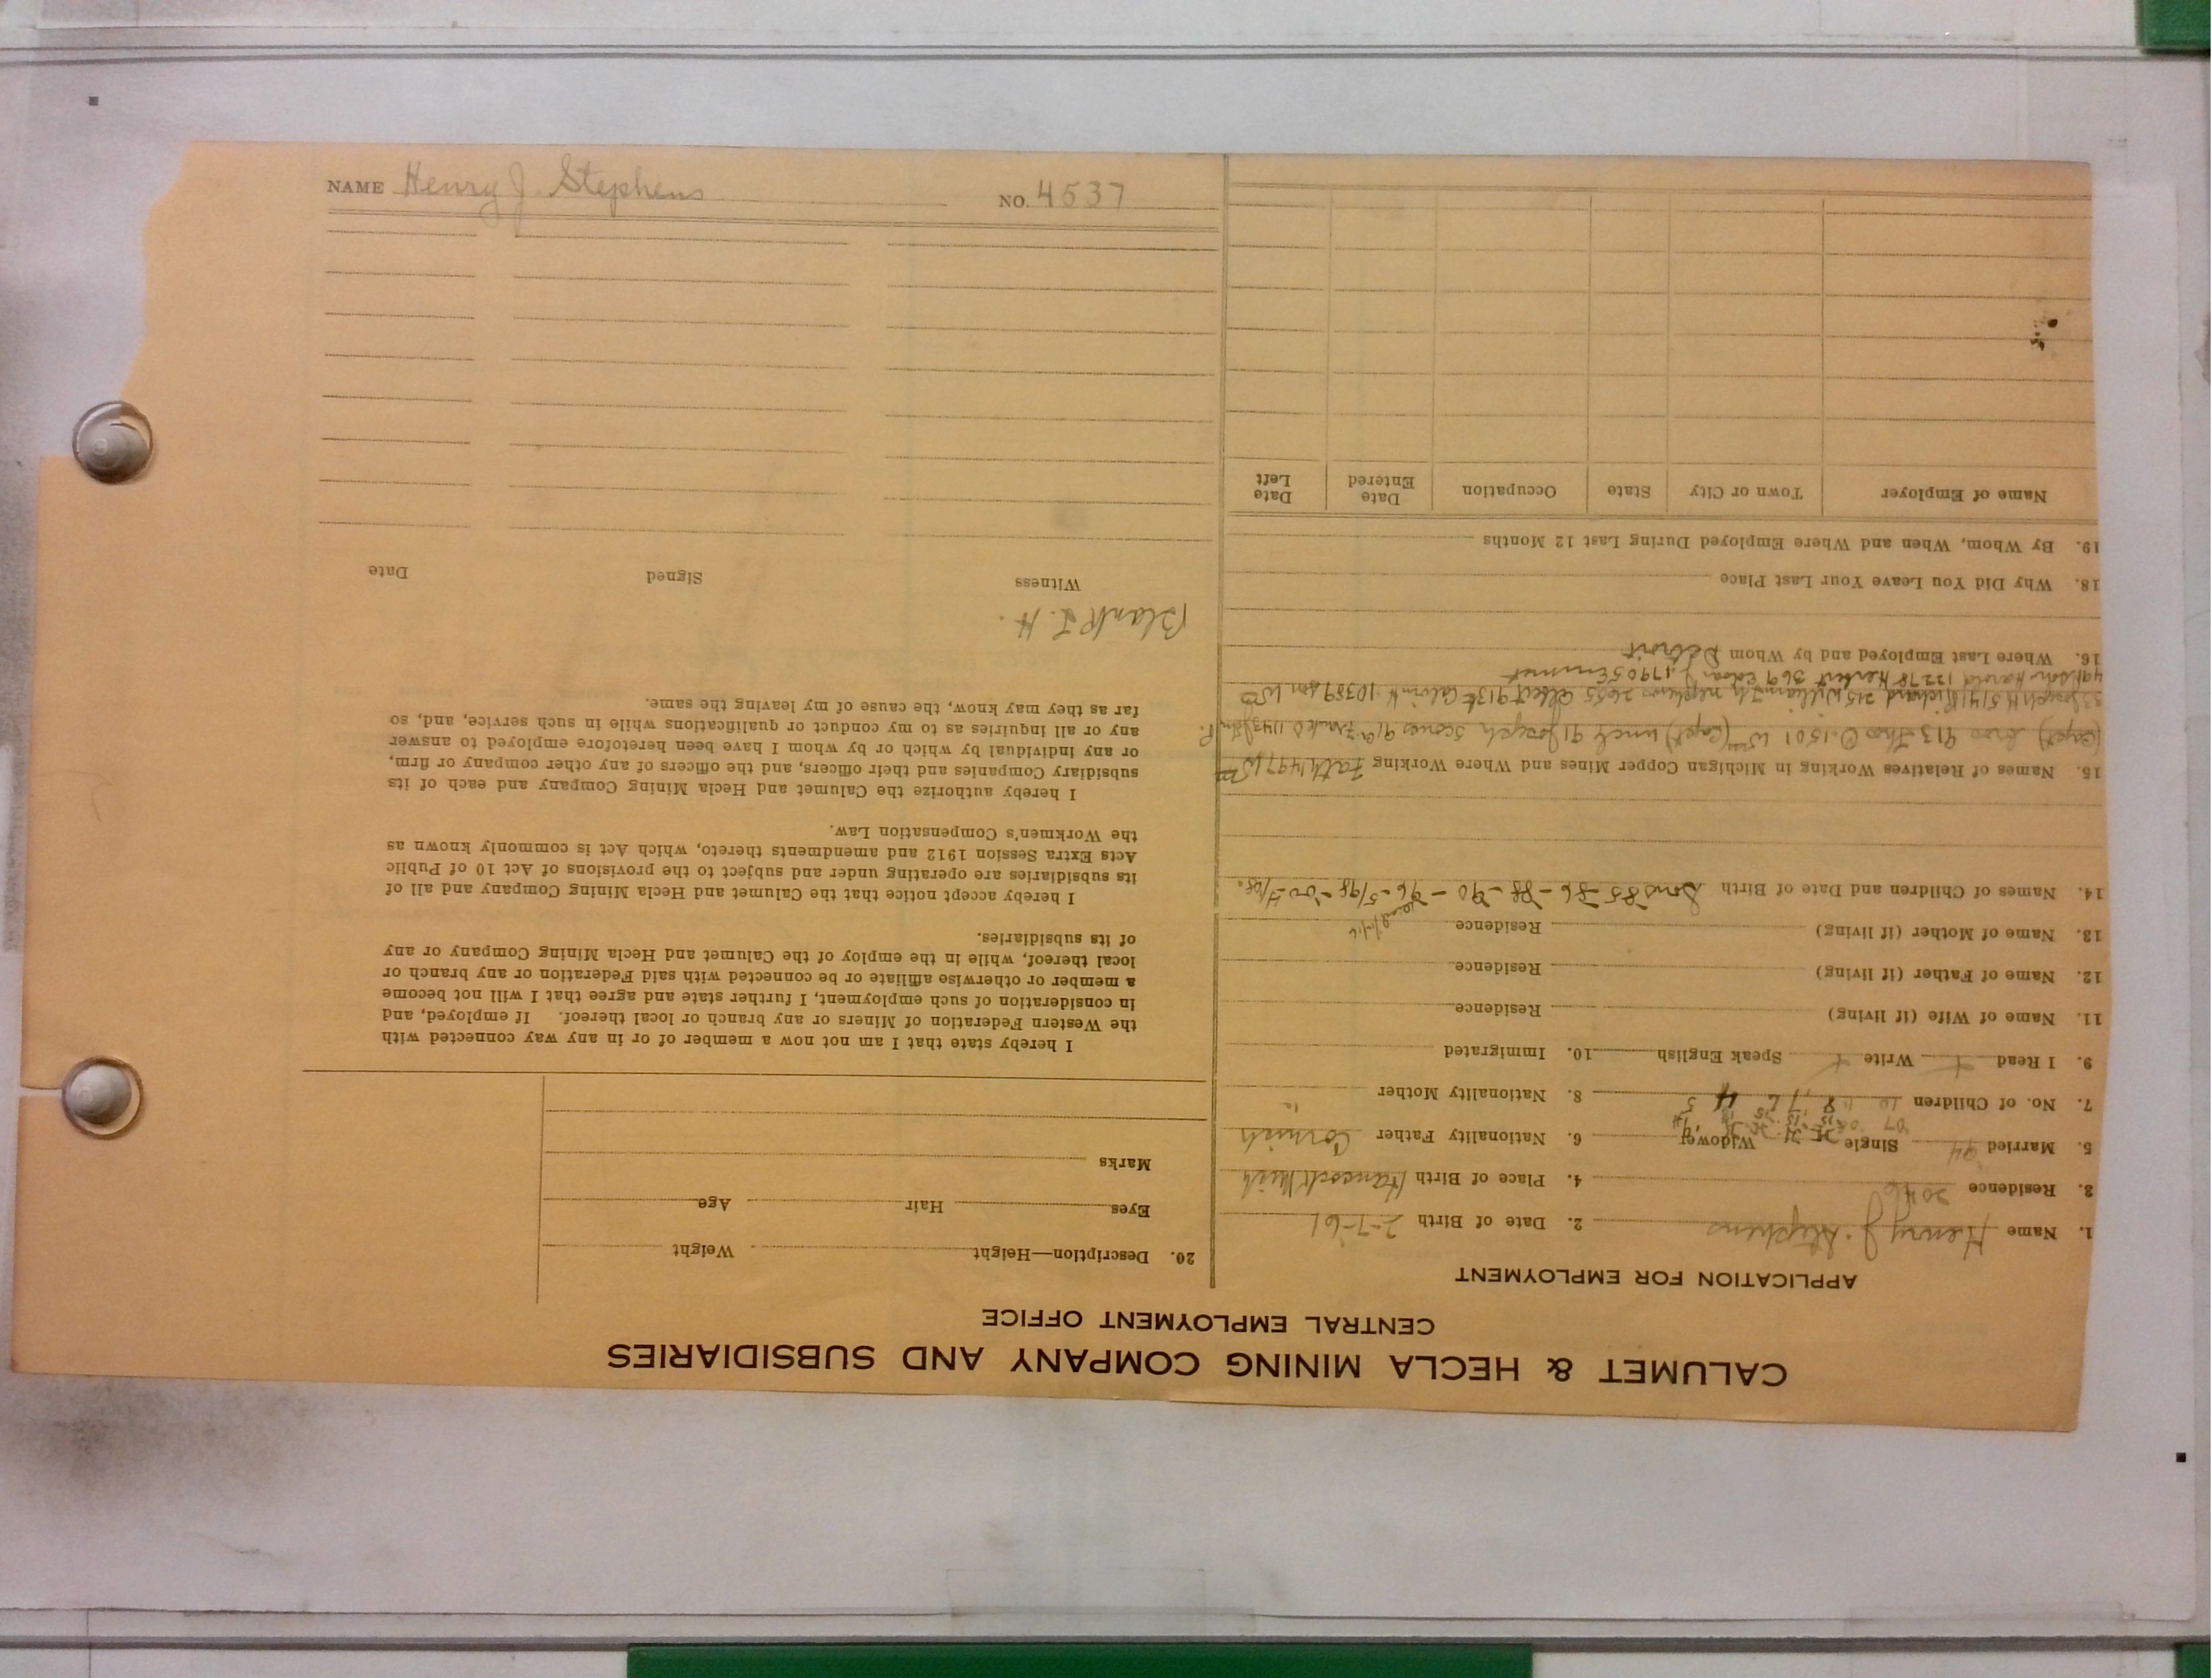 NAME Henry J. Stephens NO. 4537
CALUMET & HECLA MINING COMPANY AND SUBSIDIARIES
CENTRAL EMPLOYMENT OFFICE
APPLICATION FOR EMPLOYMENT
1. Name Henry J. Stephens 2. Date of Birth 2-7-61
3. Residence 2046 4. Place of Birth Hancock Mich
5. Married 94 Single Widower 6. Nationality Father Cornish
7. No. of Children 8. Nationality Mother
9. I Read Write Speak English 10. Immigrated
11. Name of Wife (if living) Residence
12. Name of Father (if living) Residence
13. Name of Mother (if living) Residence
14. Names of Children and Date of Birth Sons 85-86-88-90-
15. Names of Relatives Working in Michigan Copper Mines and Where Working Fath 1497 Wm
(Capt) bros 913 Thos 1501 Wm (Capt) uncle 91 Joseph 919 Frank
Joseph H 5141 Richard 215 William J nephews 2655 Albert 9137 Calvin H. 10389 son Wm
son Harold 12278 Herbert 369 Edgar J. 17905
16. Where Last Employed and by Whom Detroit
18. Why Did You Leave Your Last Place
19. By Whom, When and Where Employed During Last 12 Months
Name of Employer Town or City State Occupation Date Entered Date Left
20. Description—Height Weight
Eyes Hair Age
Marks
I hereby state that I am not now a member of or in any way connected with
the Western Federation of Miners or any branch or local thereof. If employed, and
in consideration of such employment, I further state and agree that I will not become
a member or otherwise affiliate or be connected with said Federation or any branch or
local thereof, while in the employ of the Calumet and Hecla Mining Company or any
of its subsidiaries.
I hereby accept notice that the Calumet and Hecla Mining Company and all of
its subsidiaries are operating under and subject to the provisions of Act 10 of Public
Acts Extra Session 1912 and amendments thereto, which Act is commonly known as
the Workmen's Compensation Law.
I hereby authorize the Calumet and Hecla Mining Company and each of its
subsidiary Companies and their officers, and the officers of any other company or firm,
or any individual by which or by whom I have been heretofore employed to answer
any or all inquiries as to my conduct or qualifications while in such service, and, so
far as they may know, the cause of my leaving the same.
Blank I. H.
Witness Signed Date